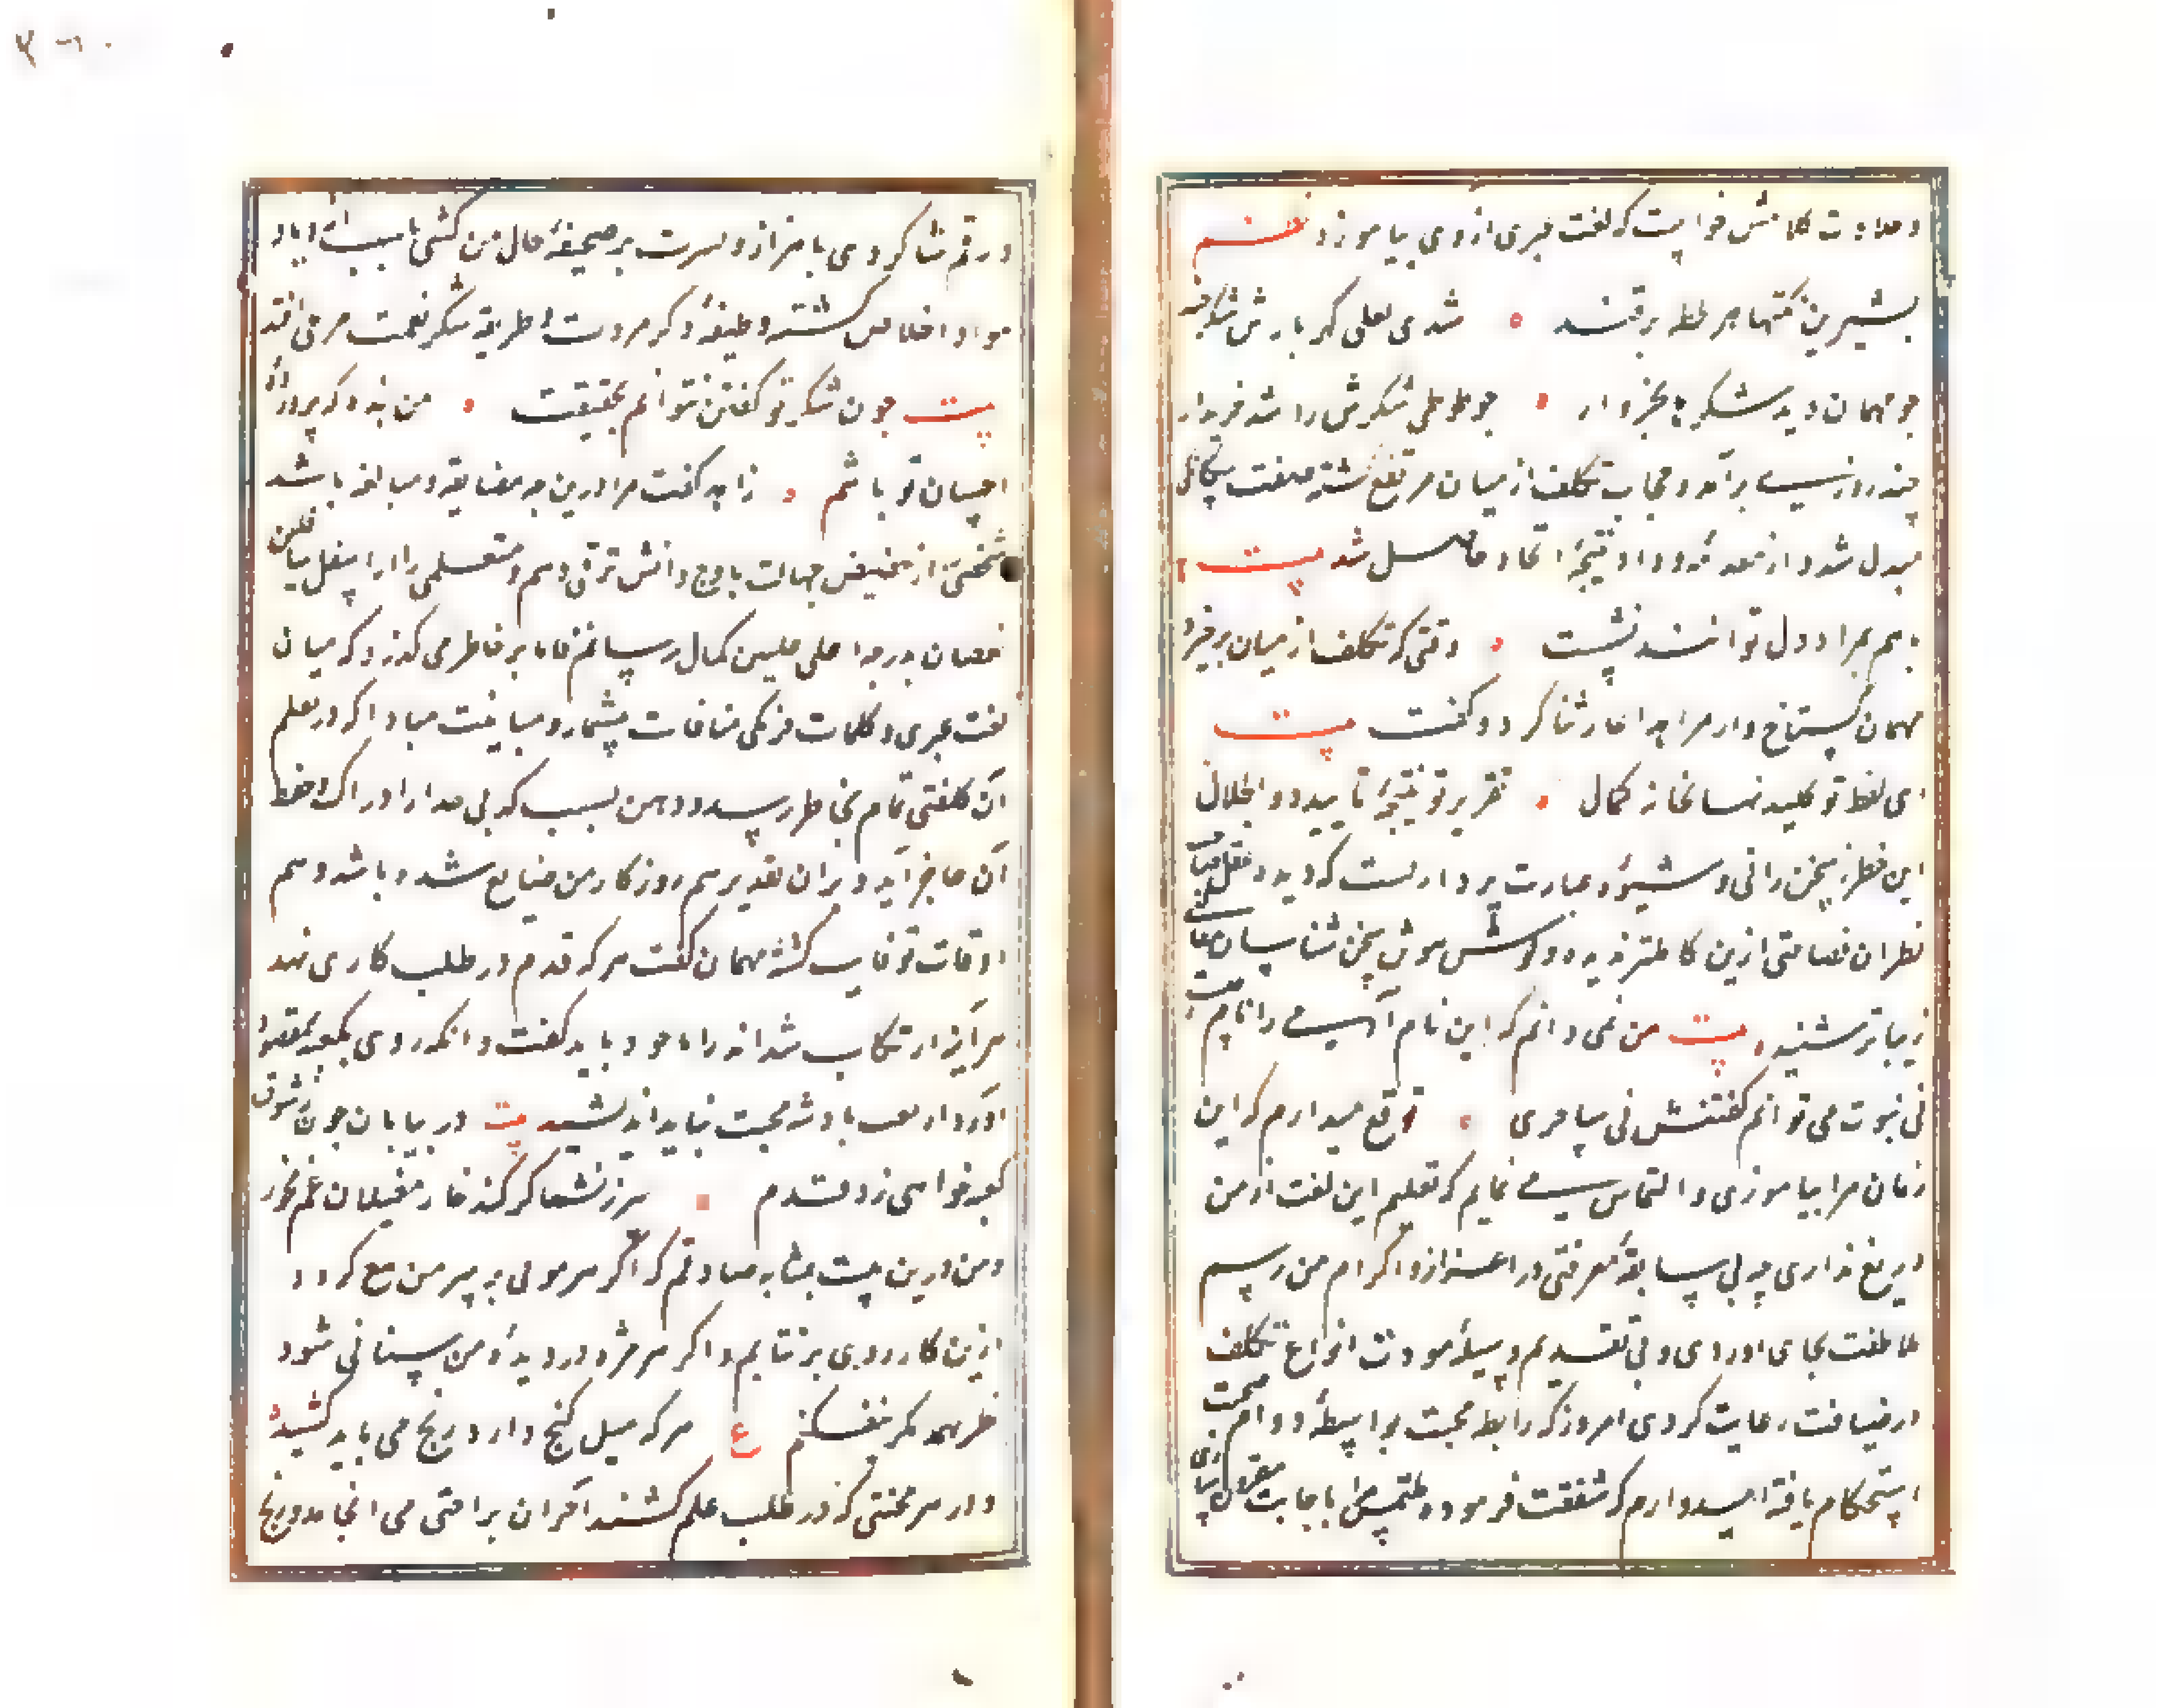 و حلاوت کلامش خواست که لغت عبری از وی بیاموزد نظم
بشیرین نکتها هر لحظه برقند شدی لعلی گهربارش شکرخند
چو مهمان دید شکر بخروار چو طوطی شکرش را شد خریدار
چند روزی برآمد و حجاب تکلف از میان مرتفع شده صفت بیگانگی
مبدل شد و از مقدمهٔ وداد نتیجهٔ اتحاد حاصل شد بیت
با هم بمراد دل توانند نشست وقتی که تکلف از میان برخیزد
مهمان گستاخ وار مراهد اغاز ثنا کرد و گفت بیت
ای لفظ تو کلید نهانخانه کمال تقریر تو نتیجهٔ تایید ذو الجلال
این چه طرز سخن رانی و شیوهٔ عبارت پردازیست که دیدهٔ عقل صاحب
نظران فصاحتی ازین کاملتر ندیده و گوش هوش سخن شناسان
زیباتر نشنیده بیت من نمی دانم که این نام آهی را نام چیست
نی نبوت می توانم گفتنش نی ساحری توقع میدارم که این
زبان مرا بیاموزی و التماس می نمایم که تعلیم این لغت از من
دریغ نداری چه بی سابقهٔ معرفتی در اعزاز و اکرام من رسم
ملاطفت بجای اوردی و بی تقدیم وسیلهٔ مودت انواع تکلف
در ضیافت رعایت کردی امروز که رابطهٔ محبت بواسطهٔ دوام صحبت
استحکام یافته امیدوارم که شفقت فرموده ملتمس مرا باجابت مقرون سازی
و رقم شاگردی باهزاز و مسرت بر صحیفهٔ حال من کشی تا سبب ازدیاد
مواد اخلاص گشته وظیفهٔ ذکر مروت و طریقهٔ شکر نعمت مرعی افتد
بیت چون شکر تو گفتن نتوانم بحقیقت من بنده که پروردهٔ
احسان تو باشم زاهد گفت مرا درین چه مضایقه و مبالغه باشد
شخصی از حضیض جهالت باوج دانش ترقی دهم و متعلمی را از اسفل سافلین
نقصان بدرجهٔ اعلی علیین کمال رسانم فاما بر خاطر می گذرد که میان
لغت عبری و کلمات فرنگی منافات بیشمار و مباینت مبادا که در تعلم
آن کلفتی تمام بخاطر رسد و ذهن بسبب کدبی مدار از ادراک و حفظ
آن عاجز آید و بران تقدیر هم روزگار من ضایع شده باشد و هم
اوقات تو فایت گشته مهمان گفت هرکه قدم در طلب کاری نهد
هرآینه ارتکاب شداید را با خود باید گفت و آنکه روی بکعبهٔ مقصود
آورد از تعب بادیهٔ محبت نباید اندیشید بیت در بیابان چون ز شوق
کعبه خواهی زد قدم سرزنشها گر کند خار مغیلان غم مخور
و من درین بیت بمثابه صادقم که اگر هر موئی بر سر من تیغ گردد
ازین کار روی برنتابم و اگر هر مژه در دیدهٔ من سنانی شود
نظر بهمه گر نیفکنم ع هرکه میل گنج دارد رنج می باید کشید
و از هر محنتی که در طلب علم کشند آخر آن براحتی می انجامد و رنج